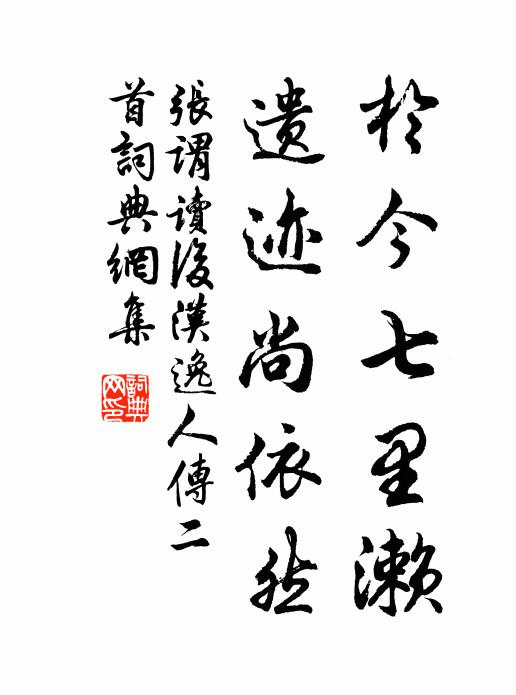 於今七里瀨
遺迹尚依然
張謂讀後漢逸人傳二
首詞典網集
詞典
网印